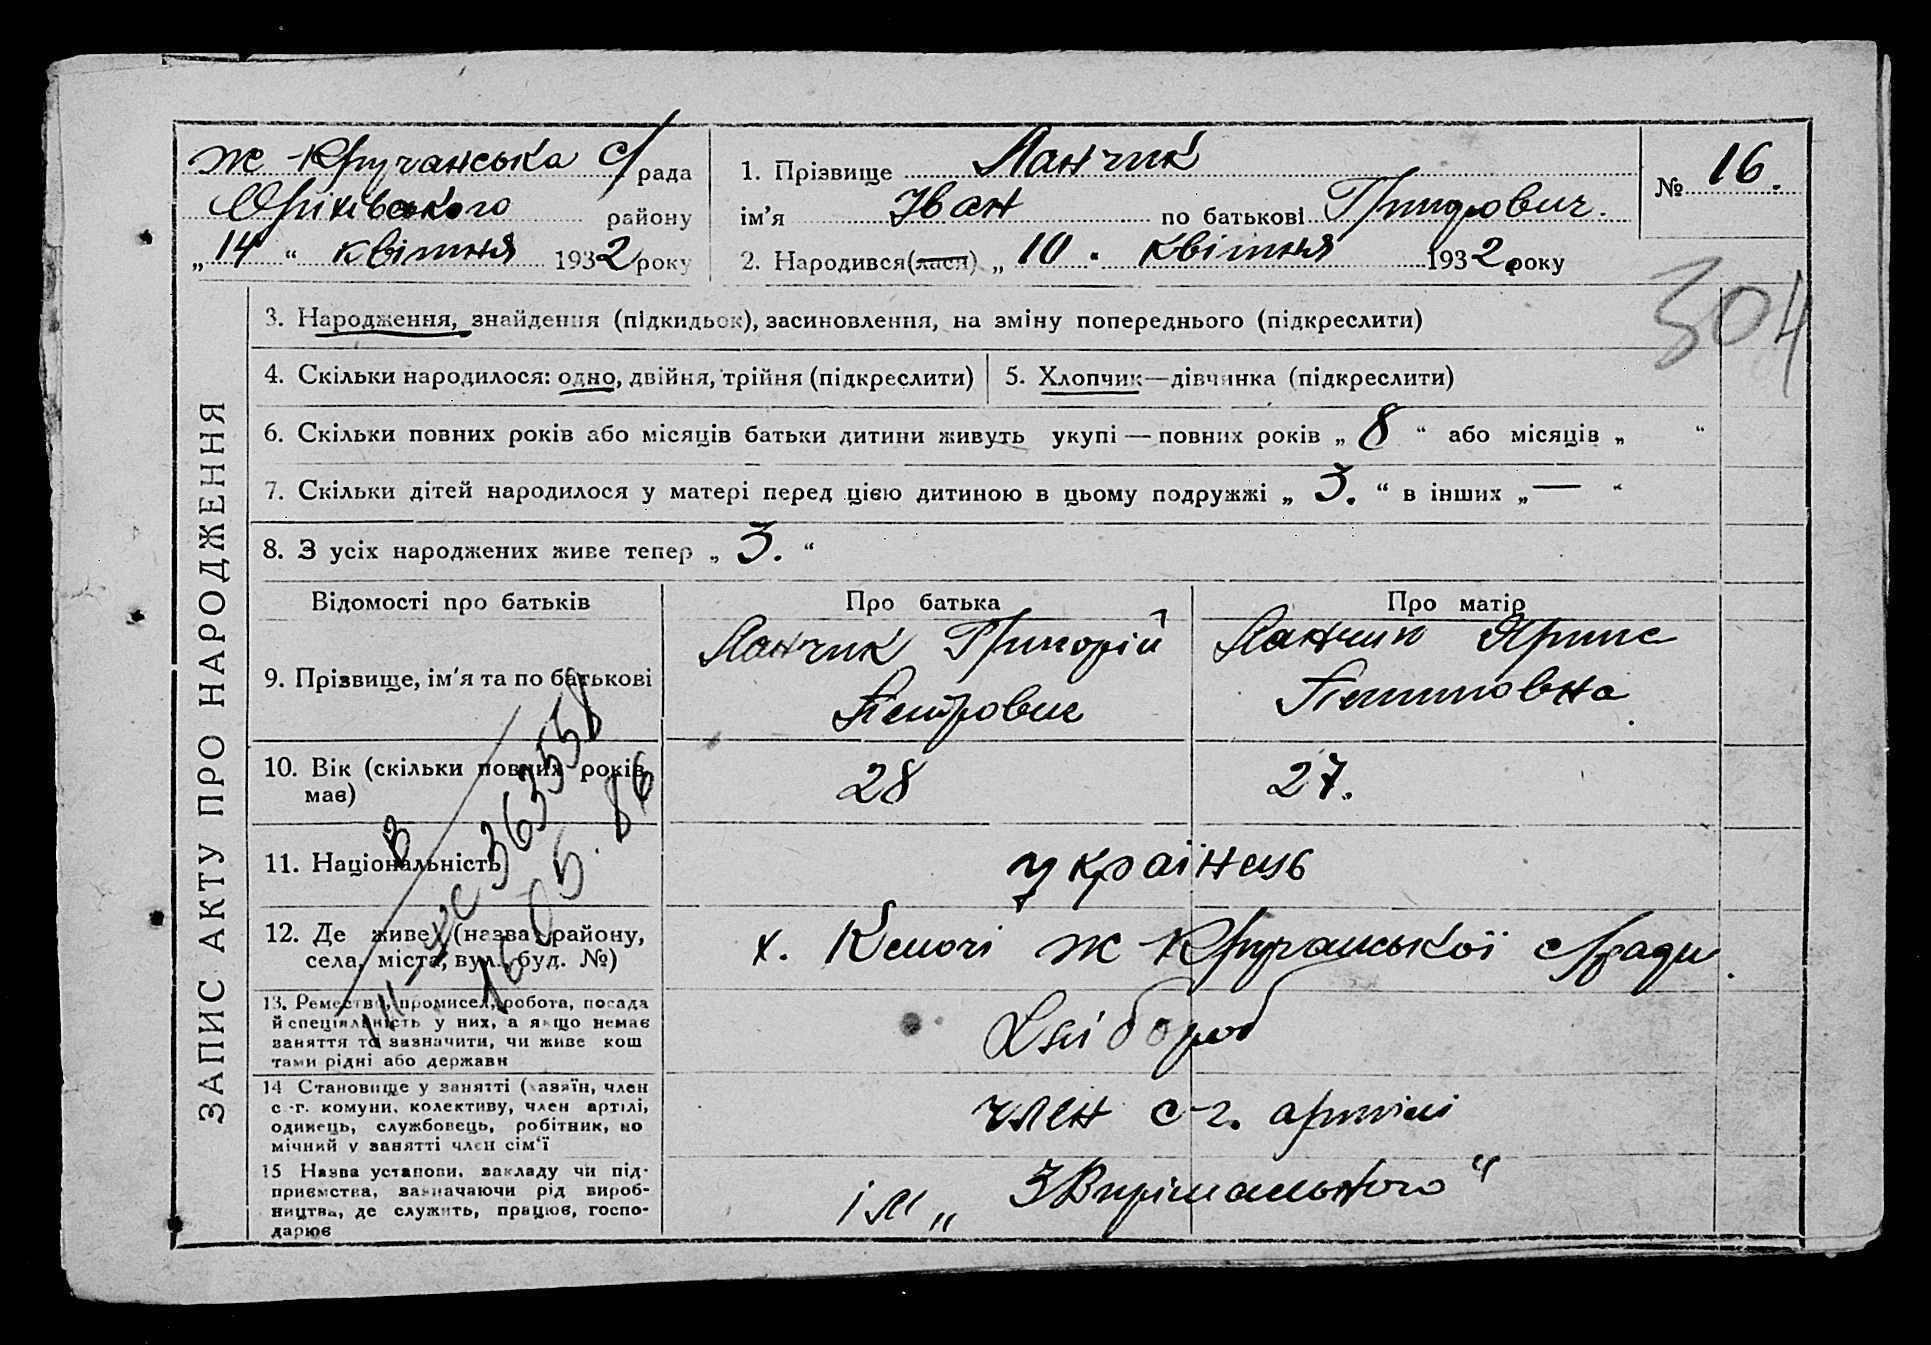 Ж Кручанська с/рада
Оріхівського району
„14“ квітня 1932 року
1. Прізвище Ланчик
ім’я Іван по батькові Григорович.
2. Народився(лася) „10“ квітня 1932 року
№ 16.
304
ЗАПИС АКТУ ПРО НАРОДЖЕННЯ
3. Народження, знайдення (підкидьок), засиновлення, на зміну попереднього (підкреслити)
4. Скільки народилося: одно, двійня, трійня (підкреслити)
5. Хлопчик—дівчинка (підкреслити)
6. Скільки повних років або місяців батьки дитини живуть укупі — повних років „8“ або місяців „ “
7. Скільки дітей народилося у матері перед цією дитиною в цьому подружжі „3.“ в інших „—“
8. З усіх народжених живе тепер „3.“
Відомості про батьків Про батька Про матір
9. Прізвище, ім’я та по батькові
Ланчик Григорій
Петрович
Ланчик
10. Вік (скільки повних років
має)
28 27.
11. Національність українець
12. Де живе (назва району,
села, міста, вул., буд. №)
х. Ж Кручанської с/ради.
13. Ремество, промисел, робота, посада
й спеціяльність у них, а якщо немає
заняття то зазначити, чи живе кош
тами рідні або держави
Хлібороб
14 Становище у занятті (хазяїн, член
с.-г. комуни, колективу, член артілі,
одинець, службовець, робітник, по
мічний у занятті член сім’ї
член с-г. артілі
15 Назва установи, закладу чи під-
приємства, зазначаючи рід вироб-
ництва, де служить, працює, госпо-
дарює
ім „
363558
16 05. 86